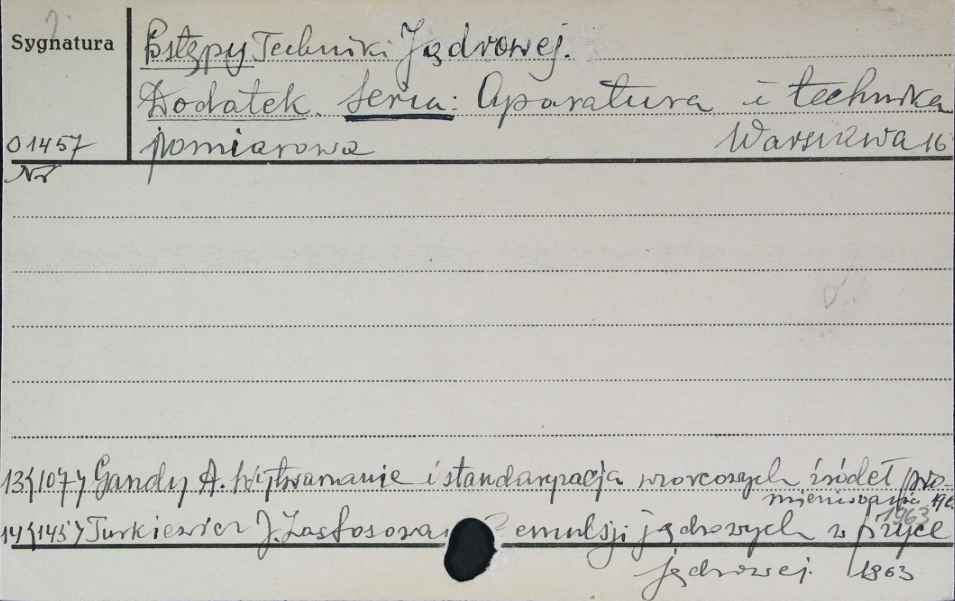 Sygnatura
Postępy Techniki Jądrowej.
Dodatek. Seria: Aparatura i technika
01457 pomiarowa Warszawa 16
Nr
13/107/ Gandy A. Wytwarzanie i standaryzacja wzorcowych źródeł pro-
mieniowania
1963
14/145/ Turkiewicz J. Zastosowani emulsji jądrowych w fizyce
jądrowej. 1963